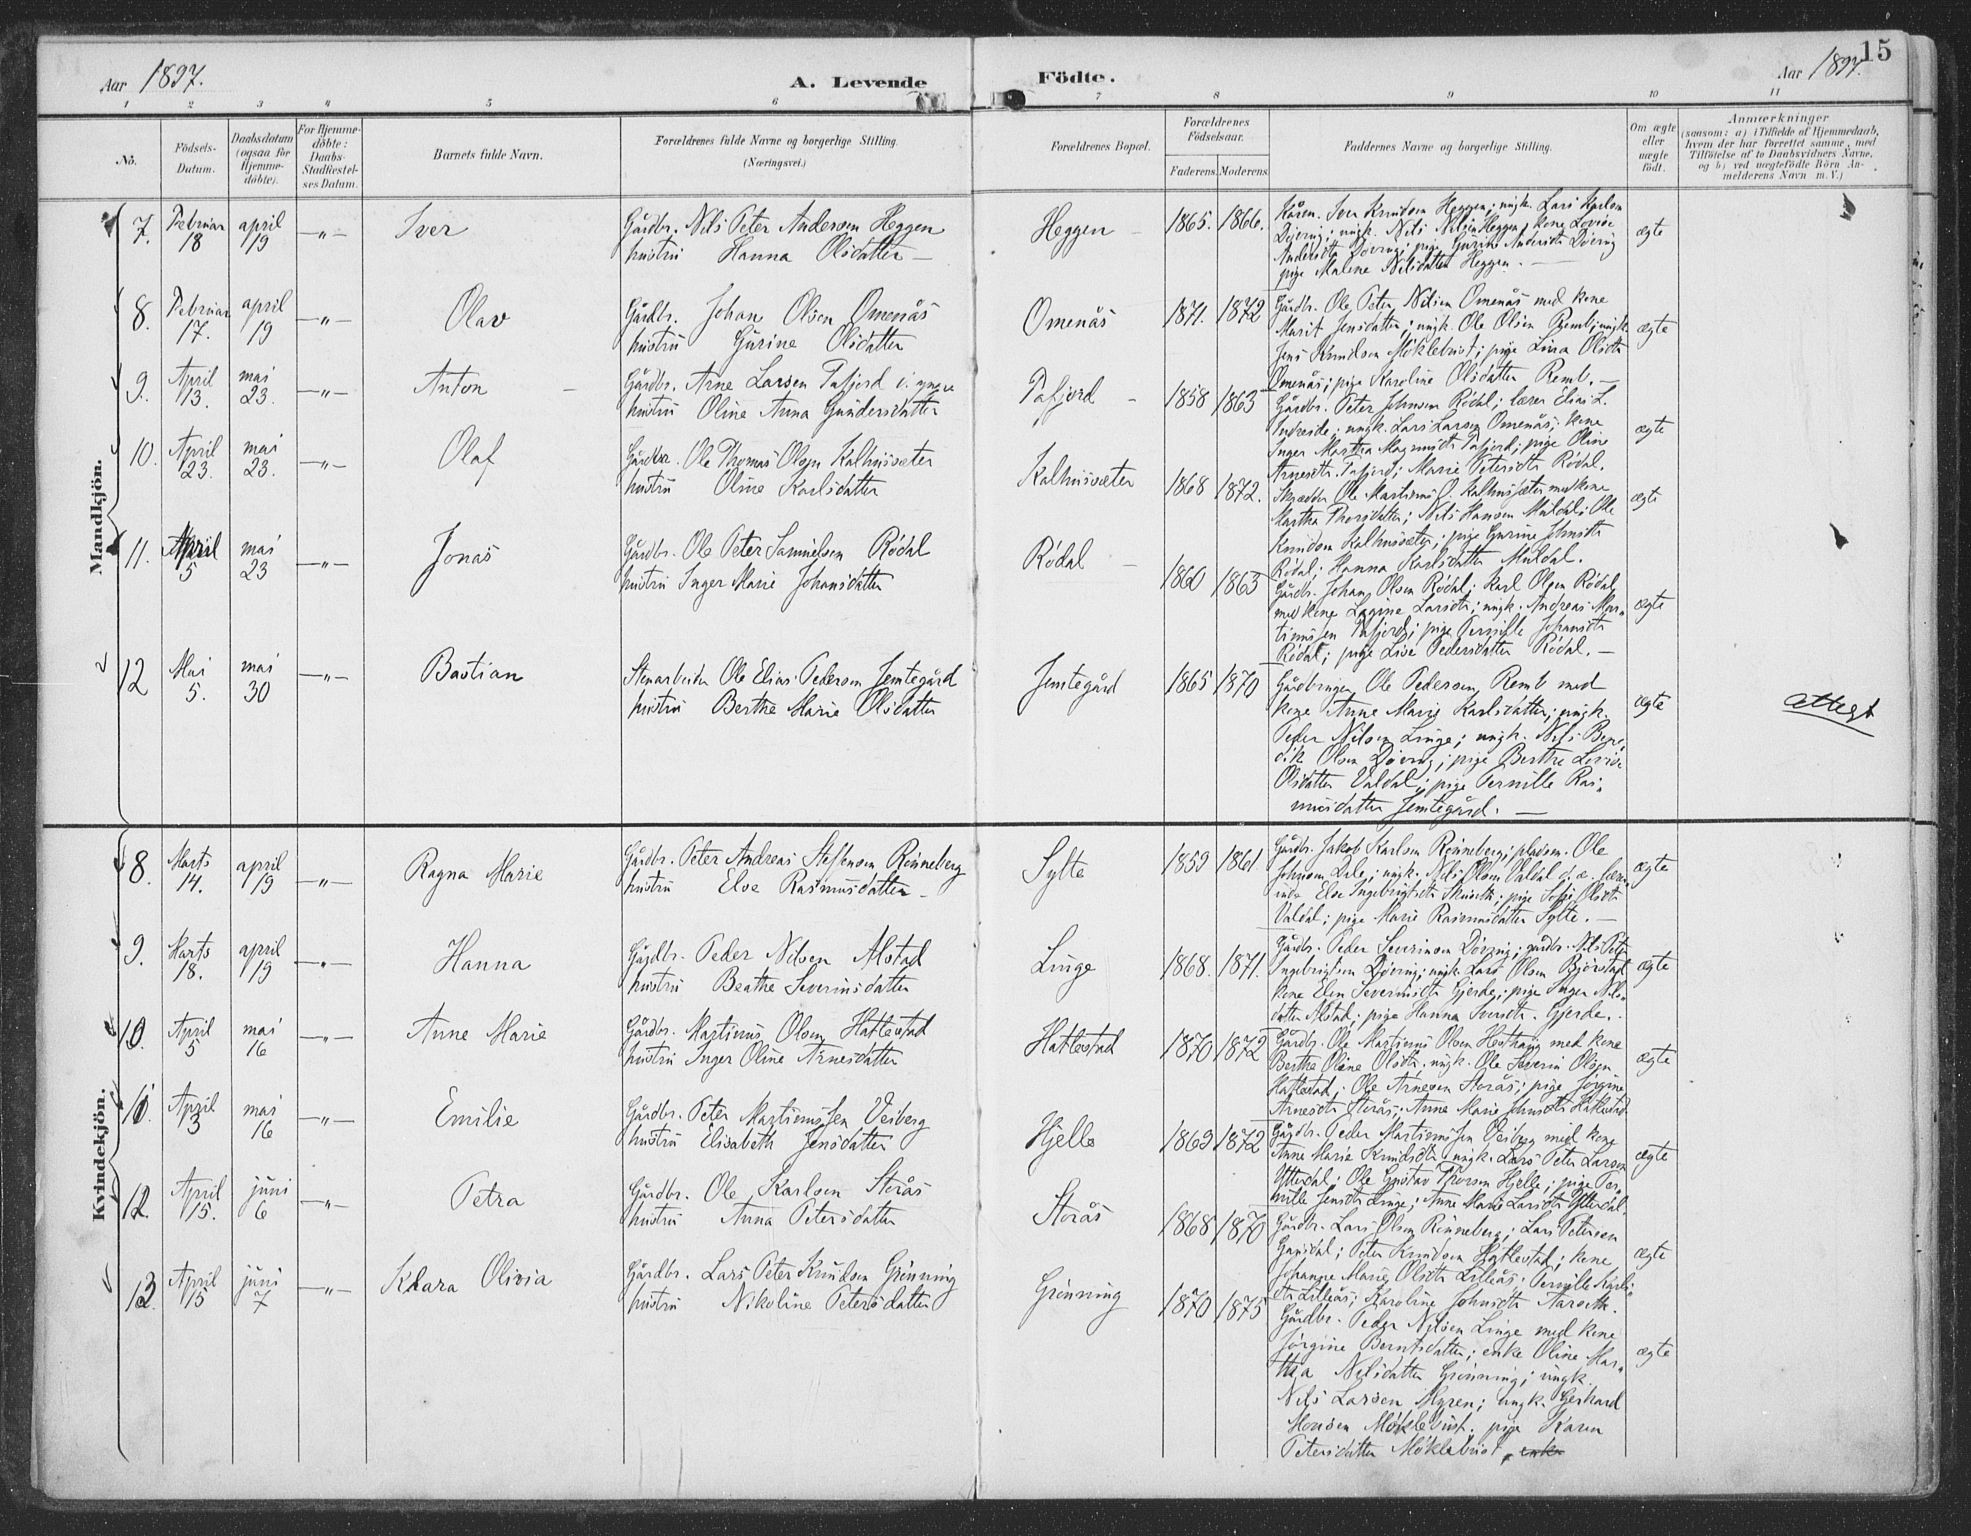 Aar 1897.
A. Levende
Födte.
Aar 1897.
15
1 2 3 4 5 6 7 8 9 10 11
No.
Födsels-Datum.
Daabsdatum (ogsaa for Hjemme-döbte).
For Hjemme-döbte: Daabs-Stadfæstel-ses Datum.
Barnets fulde Navn.
Forældrenes fulde Navne og borgerlige Stilling. (Næringsvei.)
Forældrenes Bopæl.
Forældrenes Födselsaar.
Faderens. Moderens.
Faddernes Navne og borgerlige Stilling.
Om ægte eller uægte födt.
Anmærkninger
(saasom: a) i Tilfælde af Hjemmedaab,
hvem der har forrettet samme, med
Tilföielse af to Daabsvidners Navne,
og b) ved uægtefödte Börn An-
melderens Navn m. V.)
Mandkjön.
7. Februar 18 april 19 —"— Iver
Gårdbr. Nils Peter Andersen Heggen
hustru Hanna Olsdatter —
Heggen — 1865. 1866.
Knudsen Heggen; ungk. Lars Karlsen
Döving; ungk. Nils Nilsen Heggen; kone Lovise
Andersdtr Döving; pige Gurine Andersdtr Döving
pige Malene Nilsdatter Heggen. —
ægte
8. Februar 17. april 19 —"— Olav
Gårdbr. Johan Olsen Omenås
hustru Gurine Olsdatter
Omenås 1871. 1872
Gårdbr. Ole Peter Nilsen Omenås med kone
Marit Jensdatter; ungk. Ole Olsen Remb; ungk.
Jens Knudsen Möklebust; pige Lina Olsdtr
Omenås; pige Karoline Olsdatter Remb. —
ægte
9. April 13. mai 23. —"— Anton —
Gårdbr. Arne Larsen Tafjord d. yngre
hustru Oline Anna Gundersdatter
Tafjord — 1858 1863
Gårdbr. Peter Johnsen Rödal; lærer Elias L.
Indreide; ungk. Lars Larsen Omenås; kone
Inger Martha Magnusdtr Tafjord; pige Oline
Arnesdtr. Tafjord; Marie Petersdtr Rödal.
ægte
10. April 23. mai 23. —"— Olaf
Gårdbr. Ole Thomas Olsen Kalhussæter
hustru Oline Karlsdatter
Kalhussæter 1868 1872.
Ole Martinus O. Kalhussæter med kone
Martha Thorsdatter; Nils Hansen Muldal; Ole
Knudsen Kalhussæter; pige Gurine Johnsdtr
Rödal; Hanna Karlsdatter Muldal.
ægte
11. April 5 mai 23 —"— Jonas
Gårdbr. Ole Peter Samuelsen Rödal
hustru Inger Marie Johansdatter
Rödal — 1860 1863
Gårdbr. Johan Olsen Rödal; Karl Olsen Rödal
med kone Lasine Larsdtr; ungk. Andreas Mar-
tinussen Tafjord; pige Pernille Johansdtr
Rödal; pige Lise Pedersdatter Rödal. —
ægte
12 Mai 5. mai 30 —"— Bastian
Stenarbeider Ole Elias Pedersen Jemtegård
hustru Berthe Marie Olsdatter
Jemtegård 1865 1870
Gårdbruger Ole Pedersen Remb med
kone Anne Marie Karlsdatter; ungk.
Peder Nilsen Linge; ungk. Nils Bene-
dik Olsen Döving; pige Berthe Lovise
Olsdatter Valdal; pige Pernille Ras-
musdatter Jemtegård. —
ægte
attest
Kvindekjön.
8. Marts 14. april 19 —"— Ragna Marie
Gårdbr. Peter Andreas Steffensen Rönneberg
hustru Else Rasmusdatter —
Sylte 1859 1861
Gårdbr. Jakob Karlsen Rönneberg; pladsm. Ole
Johnsen Dale; ungk. Nils Olsen Valdal d. æ. lærer-
inde Else Ingebrigtsdtr; pige Sofie Olsdtr
Valdal; pige Marie Rasmusdatter Sylte. —
ægte
9. Marts 18. april 19 —"— Hanna
Gårdbr. Peder Nilsen Alstad
hustru Beathe Severinsdatter
Linge 1868. 1871.
Gårdbr. Peder Severinsen Döving; gårdbr. Nils Peter
Ingebrigtsen Döving; ungk. Lars Olsen Bjørstad
kone Elen Severinsdtr Gjerde; pige Inger Nils-
datter Alstad; pige Hanna Gjerde.
ægte
10. April 5 mai 16 —"— Anne Marie
Gårdbr. Martinus Olsen Hatlestad
hustru Inger Oline Arnesdatter
Hatlestad 1870 1872
Gårdbr. Ole Martinus Olsen med kone
Berthe Oline Olsdtr; ungk. Ole Severin Olsen
Hatlestad; Ole Arnesen Storås; pige Jörgine
Arnesdtr Storås; Anne Marie Johnsdtr Hatlestad
ægte
11. April 3 mai 16 —"— Emilie
Gårdbr. Peter Martinussen Veiberg
hustru Elisabeth Jensdatter
Hjelle 1869 1872
Gårdbr. Peder Martinussen Veiberg med kone
Anne Marie Knudsdtr; ungk. Lars Peter Larsen
Ytterdal; Ole Gustav Thorsen Hjelle; pige Per-
nille Jensdtr Linge; Anne Marie Larsdtr Ytterdal.
ægte
12. April 15. juni 6 —"— Petra
Gårdbr. Ole Karlsen Storås
hustru Anna Petersdatter
Storås 1868 1870
Gårdbr. Lars Olsen Rönneberg; Lars Petersen
Grønsdal; Peter Knudsen Hatlestad; kone
Johanne Marie Olsdtr Lilleås; Pernille Karls-
dtr Lilleås; Karoline Johnsdtr.
ægte
13. April 15 juni 7 —"— Klara Olivia
Gårdbr. Lars Peter Knudsen Grönning
hustru Nikoline Petersdatter
Grönning 1870 1875
Gårdbr. Peder Nilsen Linge med kone
Jörgine Berntsdatter; enke Oline Mar-
tha Nilsdatter Grönning; ungk.
Nils Larsen Myren; ungk. Gerhard
Hansen Möklebust; pige Karen
Petersdatter Möklebust,
ægte